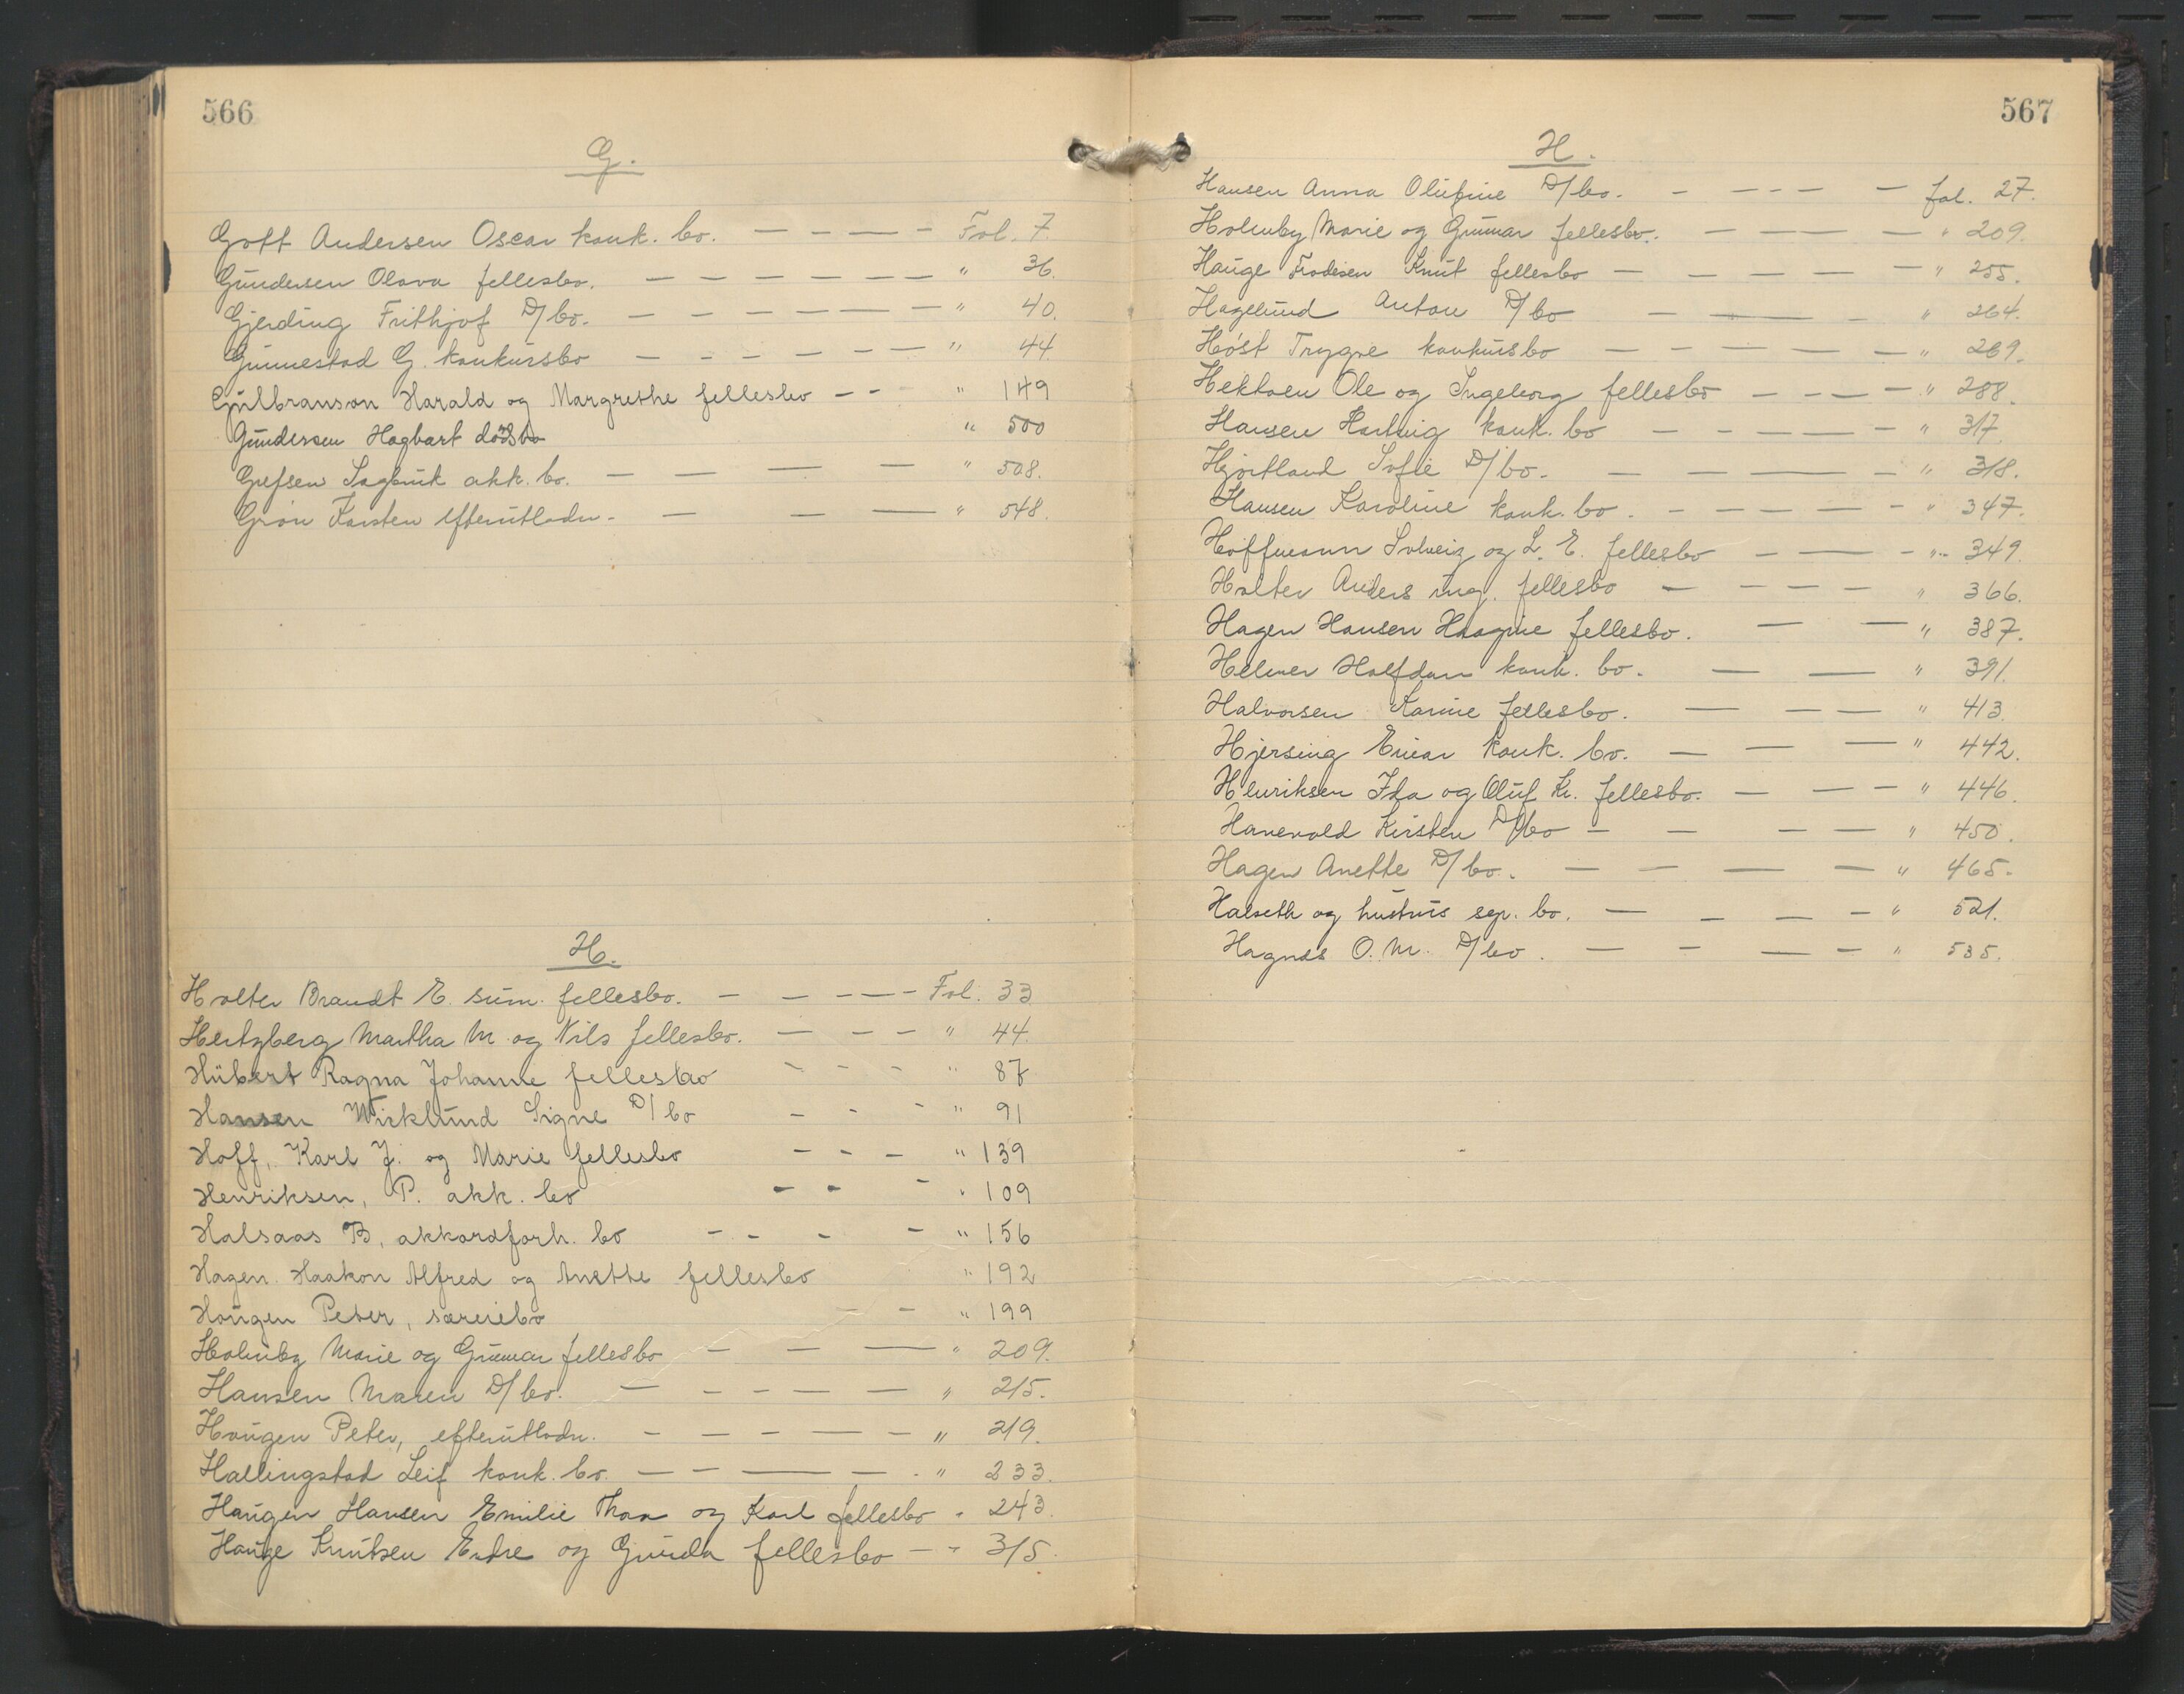 566
G.
Gott Andersen Oscar konk. bo. — — — — — Fol. 7.
Gundersen Olava fellesbo. — — — — — — — " 36.
Gjerding Frithjof D/bo. — — — — — — — " 40.
Gunnestad G. konkursbo — — — — — — — " 44
Gulbranson Harald og Margrethe fellesbo — — " 149
Gundersen Hagbart dødsbo " 500
Grefsen Sagbruk akk. bo. — — — — " 508.
Grøn Karsten efterutlodn. — — — " 548.
H.
Holter Brandt E. sum. fellesbo. — — — — — Fol. 33
Hertzberg Martha M. og Nils fellesbo. — — — " 44.
Hübert Ragna Johanne fellesbo — — — " 87
Hansen Wicklund Signe D/bo — — — " 91
Hoff, Karl J. og Marie fellesbo — — — " 139
Henriksen, P. akk. bo — — — " 109
Halsaas B, akkordforh. bo — — — — " 156
Hagen Haakon Alfred og Anette fellesbo " 192
Haugen Peter, særeiebo — — " 199
Holmby Marie og Gunnar fellesbo — — — " 209.
Hansen Maren D/bo. — — — — — " 215.
Haugen Peter, efterutlodn. — — — — — " 219.
Hallingstad Leif konk. bo. — — — — . " 233.
Haugen Hansen Emilie Thea og Karl fellesbo - 243.
Hauge Knutsen Endre og Gurda fellesbo — - 315.
567
H.
Hansen Anna Olufine D/bo. — — — — — fol. 27.
Holmby Marie og Gunnar fellesbo. — — — — " 209.
Hauge Frodesen Knut fellesbo — — — — — " 255.
Hagelund Anton D/bo — — — " 264.
Høst Trygve konkursbo — — — — — — " 269.
Hektoen Ole og Ingeborg fellesbo — — — — — " 288.
Hansen Hartvig konk. bo — — — — — " 317.
Hjortland Sofie D/bo. — — — — " 318.
Hansen Karoline konk. bo. — — — — — — " 347.
Hoffmann Solveig og L. E. fellesbo — — — " 349.
Holter Anders ing. fellesbo — — — — " 366.
Hagen Hansen Haagine fellesbo. — — " 387.
Helmer Halfdan konk. bo. — — " 391.
Halvorsen Karine fellesbo. — — — " 413.
Hjersing Einar konk. bo. — — — " 442.
Henriksen Ida og Oluf Kr. fellesbo. — — — " 446.
Hanevold Kirsten D/bo — — — — " 450.
Hagen Anette D/bo. — — — — " 465.
Halseth og hustrus sep. bo. — — — — " 521.
Hagnæs O. M. D/bo. — — — — " 535.